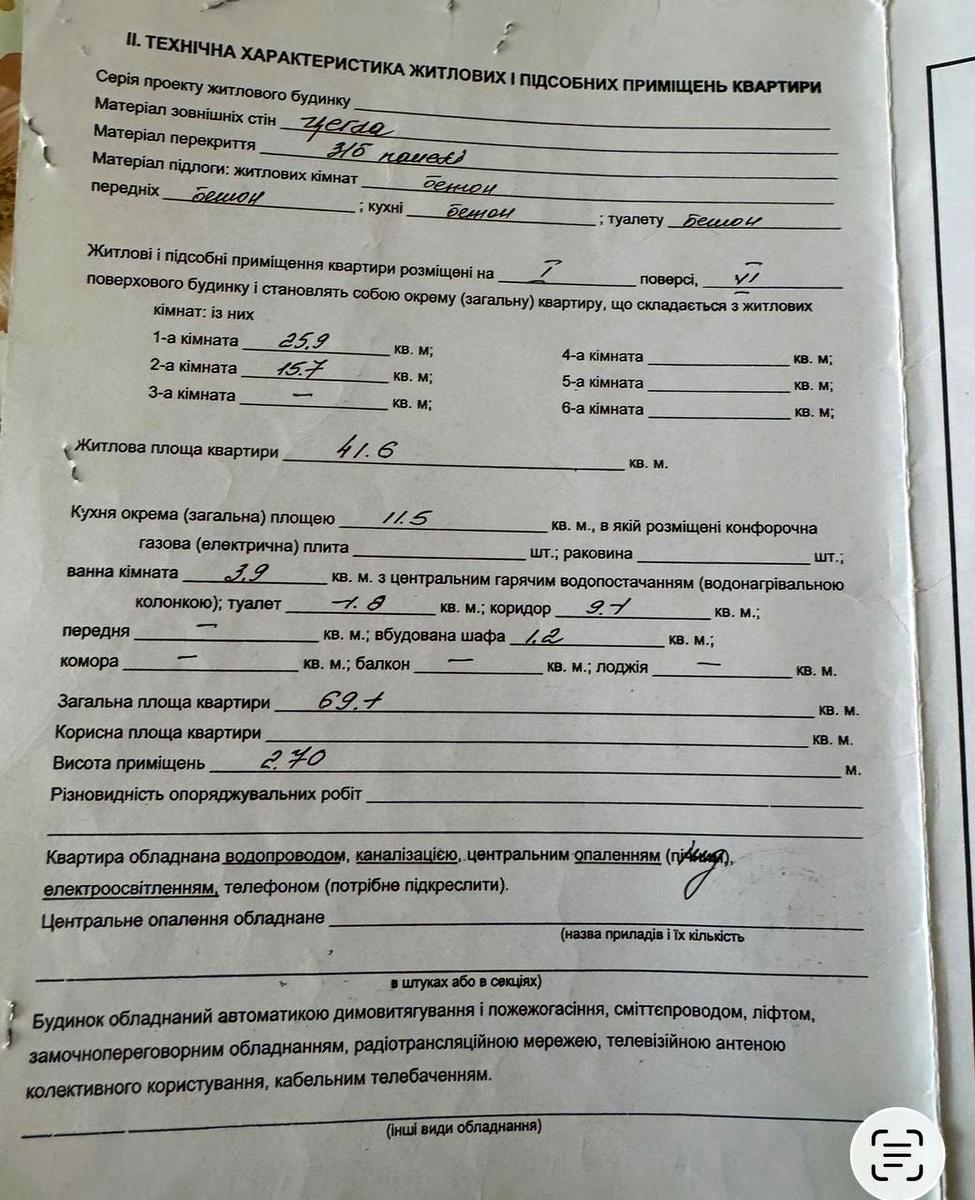 II. ТЕХНІЧНА ХАРАКТЕРИСТИКА ЖИТЛОВИХ І ПІДСОБНИХ ПРИМІЩЕНЬ КВАРТИРИ
Серія проекту житлового будинку
Матеріал зовнішніх стін цегла
Матеріал перекриття з/б панелі
Матеріал підлоги: житлових кімнат бетон
передніх бетон ; кухні бетон ; туалету бетон
Житлові і підсобні приміщення квартири розміщені на I поверсі, VI
поверхового будинку і становлять собою окрему (загальну) квартиру, що складається з житлових
кімнат: із них
1-а кімната 25,9 кв. м; 4-а кімната кв. м;
2-а кімната 15.7 кв. м; 5-а кімната кв. м;
3-а кімната — кв. м; 6-а кімната кв. м;
Житлова площа квартири 41.6 кв. м.
Кухня окрема (загальна) площею 11.5 кв. м., в якій розміщені конфорочна
газова (електрична) плита шт.; раковина шт.;
ванна кімната 3,9 кв. м. з центральним гарячим водопостачанням (водонагрівальною
колонкою); туалет 1.8 кв. м.; коридор 9.1 кв. м.;
передня — кв. м.; вбудована шафа 1.2 кв. м.;
комора — кв. м.; балкон — кв. м.; лоджія — кв. м.
Загальна площа квартири 69.1 кв. м.
Корисна площа квартири кв. м.
Висота приміщень 2.70 м.
Різновидність опоряджувальних робіт
Квартира обладнана водопроводом, каналізацією, центральним опаленням
електроосвітленням, телефоном (потрібне підкреслити).
Центральне опалення обладнане
(назва приладів і їх кількість
в штуках або в секціях)
Будинок обладнаний автоматикою димовитягування і пожежогасіння, сміттєпроводом, ліфтом,
замочнопереговорним обладнанням, радіотрансляційною мережею, телевізійною антеною
колективного користування, кабельним телебаченням.
(інші види обладнання)